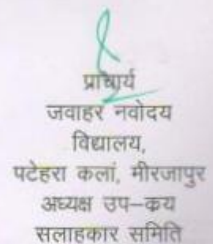 प्राचार्य
जवाहर नवोदय
विद्यालय,
पटेहरा कलां, मीरजापुर
अध्यक्ष उप–क्रय
सलाहकार समिति